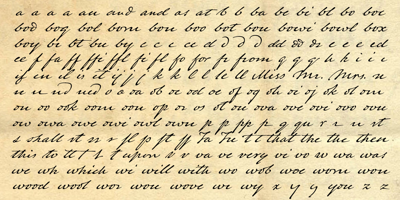 a a a a an and and as at b b ba be bi bl bo boc
bod bog bol born bou boo bot bou bowi bowl box
boy br bt bu by c c c c cd d d d dd de e e e ed
ee f fa ff ffi ffl fi fl fo for fr from g g g h h i i
if in il is it ij j k k l l le ll Miss Mr. Mrs. n
n n nd nd o o oa ob oc od oe of og oh oi oj ok ol om
on oo ook oom oon op or os ot ou ova ove ovi ovo ovu
ow owa owe owi owl own p p pp p q qu r r s st
s shall st ss s fl p st ff Ta Tu t t that the the then
this to tt t t upon v v va ve very vi vo w wa was
we wh which wi will with wo wob woe worn wou
wood woot wor wou wove wr wy x y y you z z